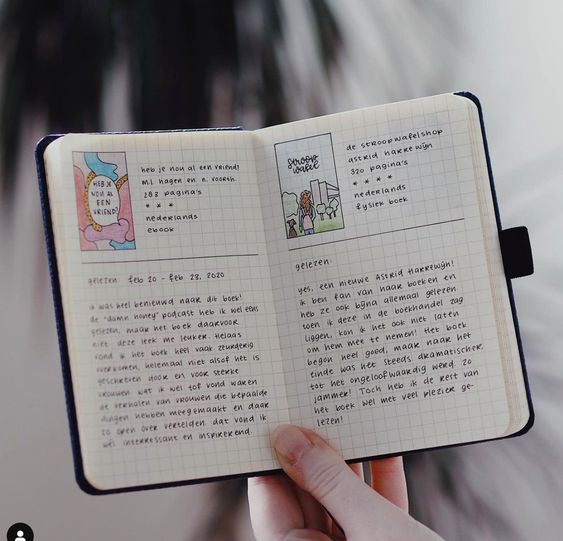 HEB JE
NOU AL
EEN
VRIEND?
heb je nou al een vriend?
M.L. Hagen en N. Voorsh.
263 pagina's
* * *
nederlands
ebook
gelezen: feb 20 - feb 28, 2020
ik was heel benieuwd naar dit boek!
de "damn honey" podcast heb ik wel eens
gelezen, maar het boek daarvoor
niet deze leek me leuker. Helaas
vond ik het boek heel vaak zeurderig
overkomen, helemaal niet alsof het is
geschreven door en voor sterke
vrouwen. wat ik wel tof vond waren
de verhalen van vrouwen die bepaalde
dingen hebben meegemaakt en daar
zo open over vertelden dat vond ik
wel interessant en inspirerend.
STROOP
WAFEL
de stroopwafelshop
Astrid Harrewijn
320 pagina's
* * * *
nederlands
fysiek boek
gelezen:
yes, een nieuwe Astrid Harrewijn!
ik ben fan van haar boeken en
heb ze ook bijna allemaal gelezen
toen ik deze in de boekhandel zag
liggen, kon ik het ook niet laten
om hem mee te nemen! Het boek
begon heel goed, maar naar het
einde was het steeds dramatischer,
tot het ongeloofwaardig werd. zo
jammer! Toch heb ik de rest van
het boek wel met veel plezier ge-
lezen!